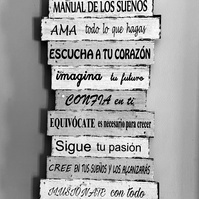 MANUAL DE LOS SUEÑOS
AMA todo lo que hagas
ESCUCHA A TU CORAZÓN
imagina tu futuro
CONFIA en ti
EQUIVÓCATE es necesario para crecer
Sigue tu pasión
CREE EN TUS SUEÑOS Y LOS ALCANZARÁS
ILUSIÓNATE con todo